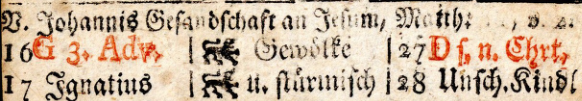 V. Johannis Gesandschaft an Jesum, Matth:
16 G 3. Adv. Gewölke 27 D s. n. Chrt.
17 Ignatius u. stürmisch 28 Unsch. Kindl